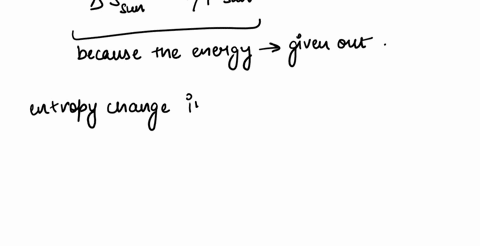 because the energy → given out .
entropy change i